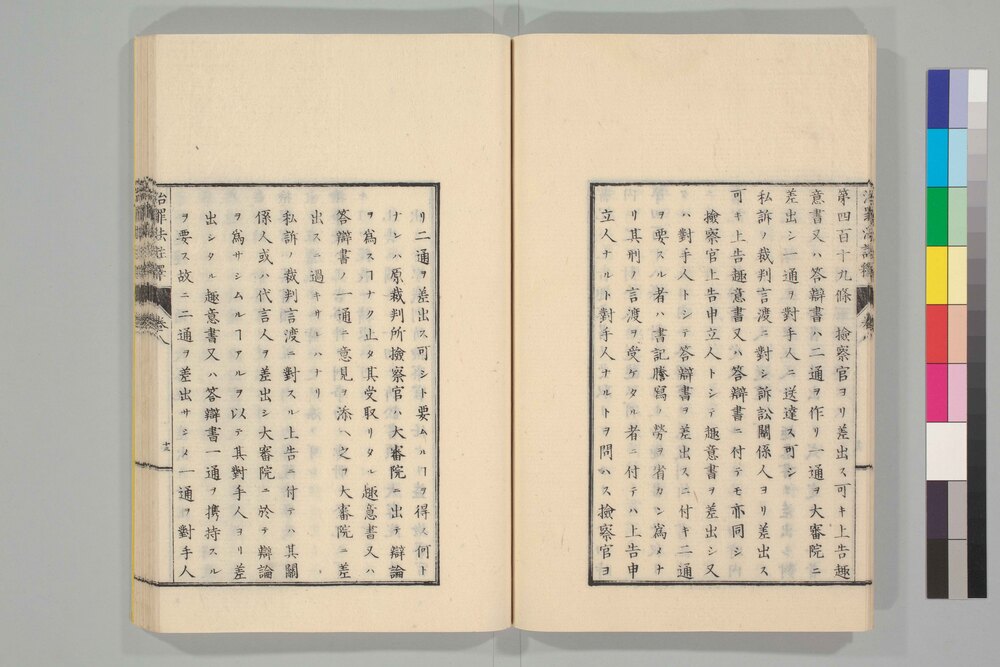 第四百十九條　檢察官ヨリ差出ス可キ上告趣
意書又ハ答辯書ハ二通ヲ作リ一通ヲ大審院ニ
差出シ一通ヲ對手人ニ送達ス可シ
私訴ノ裁判言渡ニ對シ訴訟關係人ヨリ差出ス
可キ上告趣意書又ハ答辯書ニ付テモ亦同シ
檢察官上告申立人トシテ趣意書ヲ差出シ又
ハ對手人トシテ答辯書ヲ差出スニ付キ二通
ヲ要スル者ハ書記謄寫ノ勞ヲ省カン爲メナ
リ其刑ノ言渡ヲ受ケタル者ニ付テハ上告申
立人ナルト對手人ナルトヲ問ハス檢察官ヨ
リ二通ヲ差出ス可シト要ムルヿヲ得ス何ト
ナレハ原裁判所檢察官ハ大審院ニ出テ辯論
ヲ爲スヿナク止タ其受取リタル趣意書又ハ
答辯書ノ一通ニ意見ヲ添ヘ之ヲ大審院ニ差
出スニ過キサレハナリ
私訴ノ裁判言渡ニ對スル上告ニ付テハ其關
係人或ハ代言人ヲ差出シ大審院ニ於テ辯論
ヲ爲サシムルヿアルヲ以テ其對手人ヨリ差
出シタル趣意書又ハ答辯書一通ヲ携持スル
ヲ要ス故ニ二通ヲ差出サシメ一通ヲ對手人
治罪法註釋
卷八